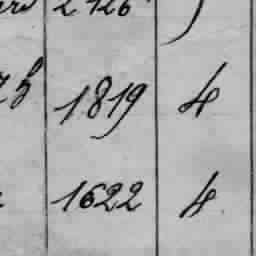 2426
1819 4
1622 4